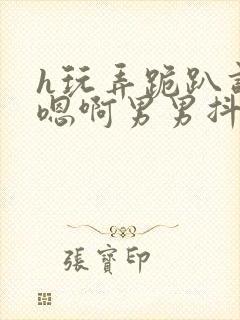 h玩弄跪趴
嗯啊男男抖
張寳印